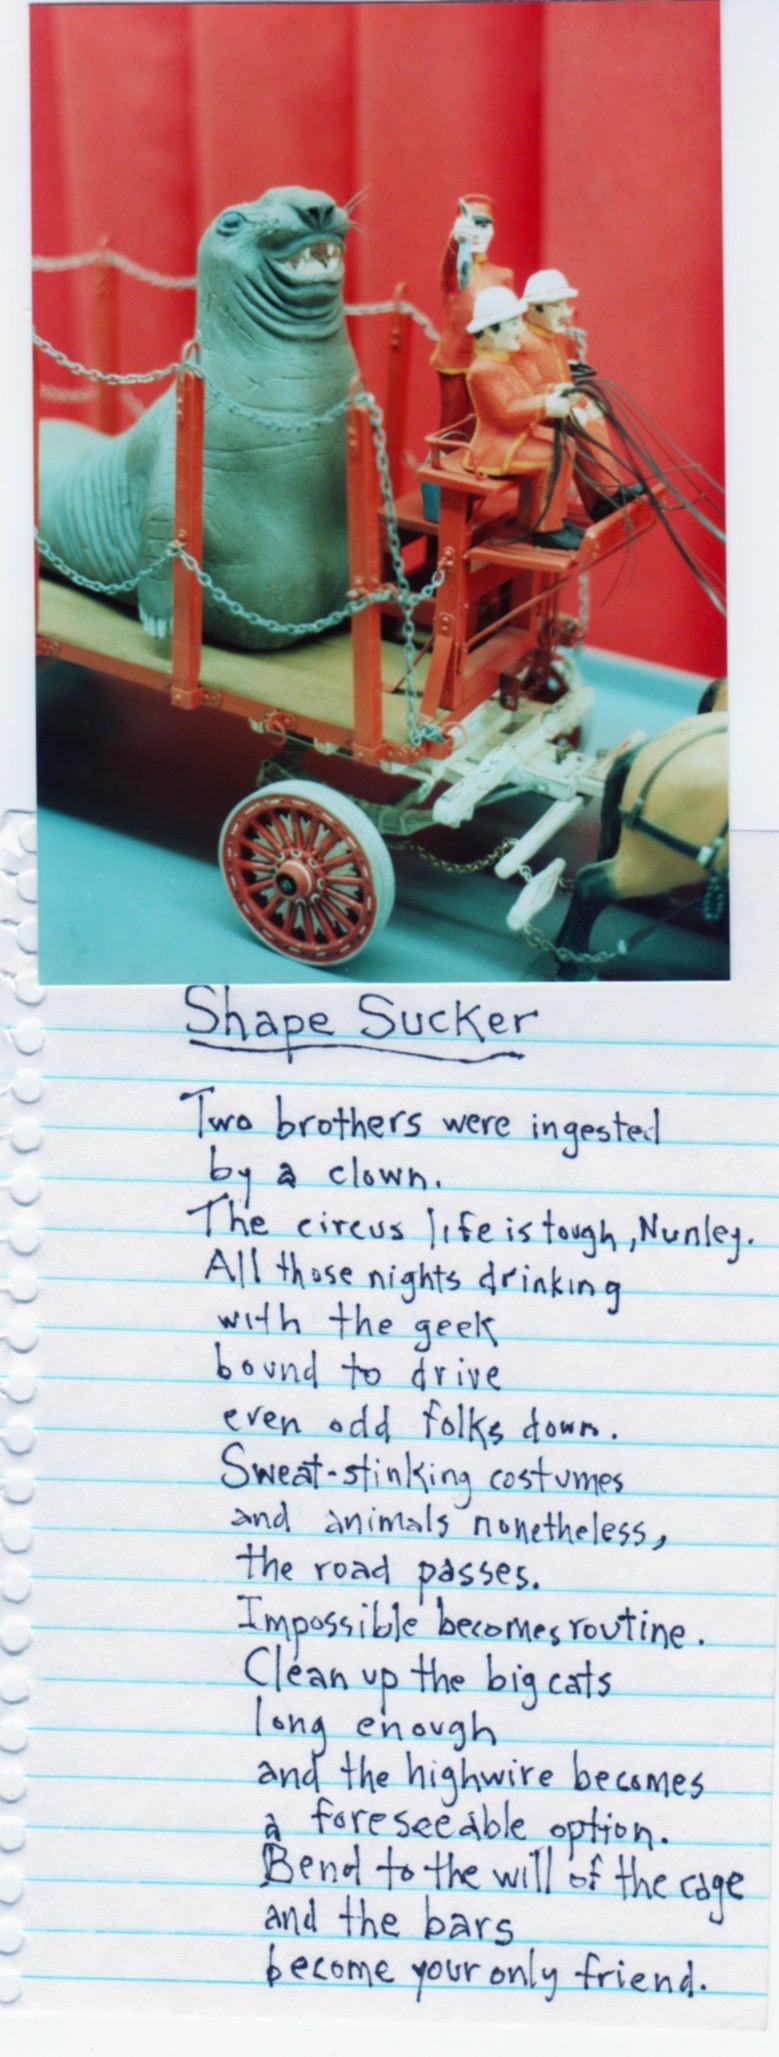 Shape Sucker
Two brothers were ingested
by a clown.
The circus life is tough, Nunley.
All those nights drinking
with the geek
bound to drive
even odd folks down.
Sweat-stinking costumes
and animals nonetheless,
the road passes.
Impossible becomes routine.
Clean up the big cats
long enough
and the highwire becomes
a foreseeable option.
Bend to the will of the cage
and the bars
become your only friend.